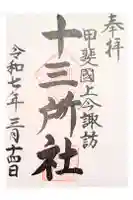 奉拝
甲斐國上今諏訪
十三所社
令和七年 三月十四日